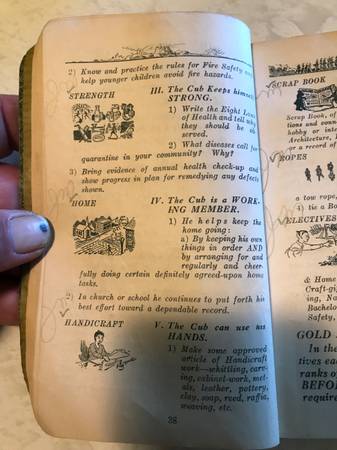 2) Know and practice the rules for Fire Safety and
help younger children avoid fire hazards.
STRENGTH
III. The Cub Keeps himself
STRONG.
1) Write the Eight Laws
of Health and tell why
they should be ob-
served.
2) What diseases call for
quarantine in your community? Why?
3) Bring evidence of annual health check-up and
show progress in plan for remedying any defects
shown.
HOME
IV. The Cub is a WORK-
ING MEMBER.
1) He helps keep the
home going:
a) By keeping his own
things in order AND
by arranging for and
regularly and cheer-
fully doing certain definitely agreed-upon home
tasks.
2) In church or school he continues to put forth his
best effort toward a dependable record.
HANDICRAFT
V. The Cub can use his
HANDS.
1) Make some approved
article of Handicraft
work—whittling, carv-
ing, cabinet-work, met-
als, leather, pottery,
clay, soap, reed, raffia,
weaving, etc.
38
SCRAP BOOK
Scrap Book, of
tions and
hobby or
Architecture,
or a record of
ROPES
a tow rope,
4) tie a
ELECTIVES
& Home
Craft-
ing, Na
Bachelor
Safety,
GOLD
In the
tives
ranks o
BEFOR
require